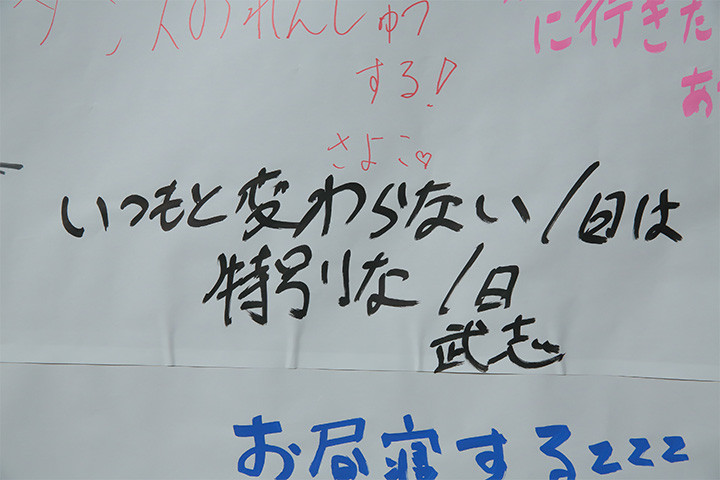 ダンスのれんしゅう
する!
さよこ♡
に行きた
あ
いつもと変わらない1日は
特別な1日
武志
お昼寝するzzz